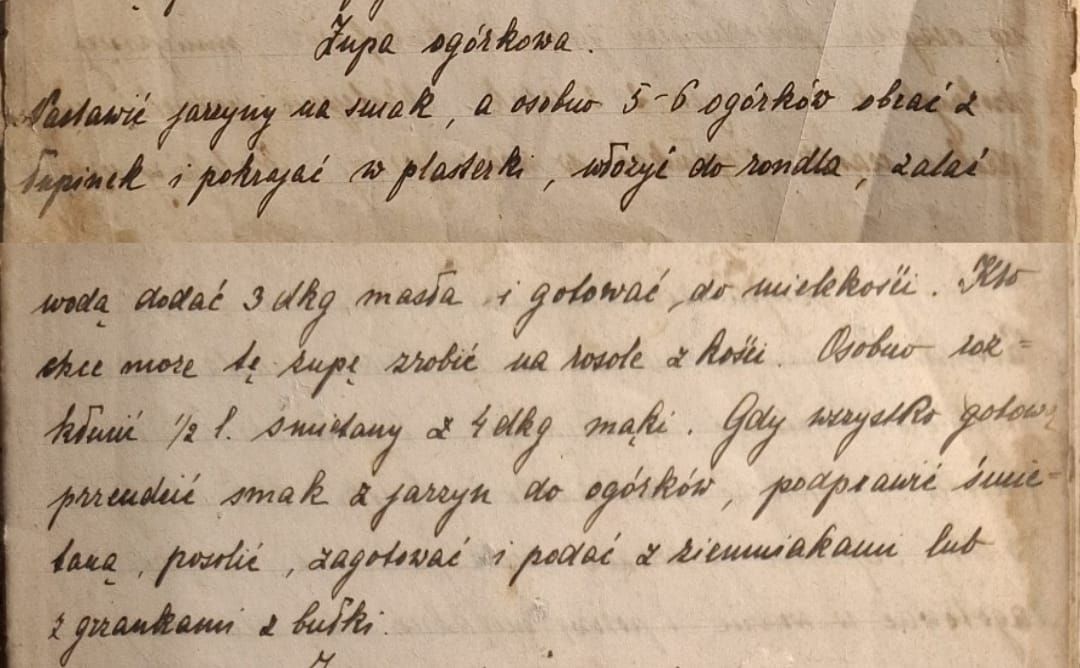 Zupa ogórkowa.
Nastawić jarzyny na smak, a osobno 5-6 ogórków obrać z
łupinek i pokrajać w plasterki, włożyć do rondla, zalać
wodą dodać 3 dkg masła i gotować do miękkości. Kto
chce może tę zupę zrobić na rosole z kości. Osobno roz=
kłucić ½ l. śmietany z 4 dkg mąki. Gdy wszystko gotowe
przecedzić smak z jarzyn do ogórków, podprawić śmie-
taną, posolić, zagotować i podać z ziemniakami lub
z grzankami z bułki.